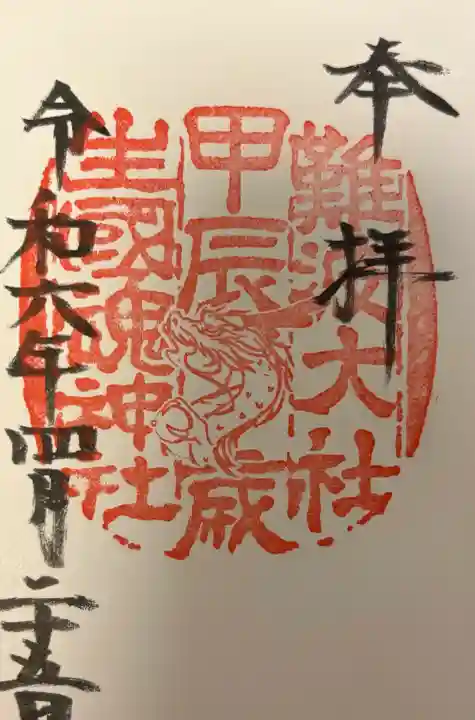 奉拝
難波大社
甲辰歳
生國魂神社
令和六年四月二十五日